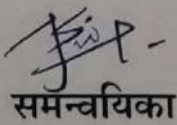 समन्वयिका